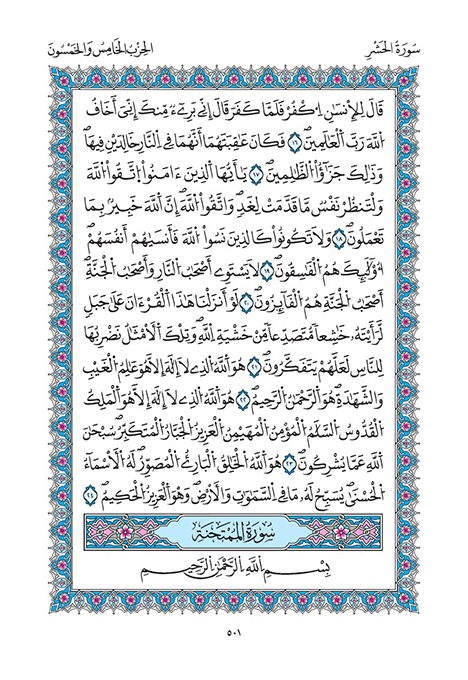 سُورَةُ الحَشْرِ
الحِزْبُ الخَامِسُ وَالخَمْسُونَ
قَالَ لِلْإِنسَٰنِ اِ۟كْفُرْ فَلَمَّا كَفَرَ قَالَ إِنِّے بَرِےٓءٌ مِّنكَ إِنِّيَ أَخَافُ
اُ۬للَّهَ رَبَّ اَ۬لْعَٰلَمِينَۖ ١٦ فَكَانَ عَٰقِبَتَهُمَا أَنَّهُمَا فِے اِ۬لنَّارِ خَٰلِدَيْنِ فِيهَاۖ
وَذَٰلِكَ جَزَٰٓؤُاْ اُ۬لظَّٰلِمِينَۖ ١٧ يَٰٓأَيُّهَا اَ۬لذِينَ ءَامَنُواْ اُ۪تَّقُواْ اُ۬للَّهَ
وَلْتَنظُرْ نَفْسٌ مَّا قَدَّمَتْ لِغَدٍۖ وَاتَّقُواْ اُ۬للَّهَۖ إِنَّ اَ۬للَّهَ خَبِيرُۢ بِمَا
تَعْمَلُونَۖ ١٨ وَلَا تَكُونُواْ كَالذِينَ نَسُواْ اُ۬للَّهَ فَأَنس۪ىٰهُمُۥٓ أَنفُسَهُمُۥٓۖ
أُوْلَٰٓئِكَ هُمُ اُ۬لْفَٰسِقُونَۖ ١٩ لَا يَسْتَوِےٓ أَصْحَٰبُ اُ۬لنَّارِ وَأَصْحَٰبُ اُ۬لْجَنَّةِۖ
أَصْحَٰبُ اُ۬لْجَنَّةِ هُمُ اُ۬لْفَآئِزُونَۖ ٢٠ لَوْ أَنزَلْنَا هَٰذَا اَ۬لْقُرْءَانَ عَلَىٰ جَبَلٍ
لَّرَأَيْتَهُۥ خَٰشِعاً مُّتَصَدِّعاً مِّنْ خَشْيَةِ اِ۬للَّهِۖ وَتِلْكَ اَ۬لْأَمْثَٰلُ نَضْرِبُهَا
لِلنَّاسِ لَعَلَّهُمْ يَتَفَكَّرُونَۖ ٢١ هُوَ اَ۬للَّهُ اُ۬لذِے لَآ إِلَٰهَ إِلَّا هُوَۖ عَٰلِمُ اُ۬لْغَيْبِ
وَالشَّهَٰدَةِۖ هُوَ اَ۬لرَّحْمَٰنُ اُ۬لرَّحِيمُۖ ٢٢ هُوَ اَ۬للَّهُ اُ۬لذِے لَآ إِلَٰهَ إِلَّا هُوَ اَ۬لْمَلِكُ
اُ۬لْقُدُّوسُ اُ۬لسَّلَٰمُ اُ۬لْمُؤْمِنُ اُ۬لْمُهَيْمِنُ اُ۬لْعَزِيزُ اُ۬لْجَبَّارُ اُ۬لْمُتَكَبِّرُۖ سُبْحَٰنَ
اَ۬للَّهِ عَمَّا يُشْرِكُونَۖ ٢٣ هُوَ اَ۬للَّهُ اُ۬لْخَٰلِقُ اُ۬لْبَارِئُ اُ۬لْمُصَوِّرُۖ لَهُ اُ۬لْأَسْمَآءُ
اُ۬لْحُسْن۪ىٰۖ يُسَبِّحُ لَهُۥ مَا فِے اِ۬لسَّمَٰوَٰتِ وَالْأَرْضِۖ وَهُوَ اَ۬لْعَزِيزُ اُ۬لْحَكِيمُۖ ٢٤
سُورَةُ المُمْتَحِنَةِ
بِسْمِ اِ۬للَّهِ اِ۬لرَّحْمَٰنِ اِ۬لرَّحِيمِ
٥٠١